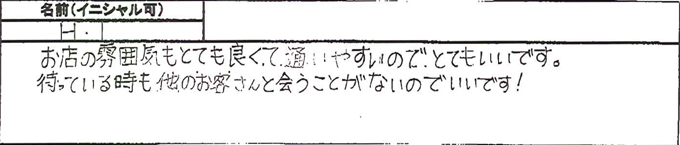 名前(イニシャル可)
H・I
お店の雰囲気もとても良くて、通いやすいので、とてもいいです。
待っている時も他のお客さんと会うことがないのでいいです!